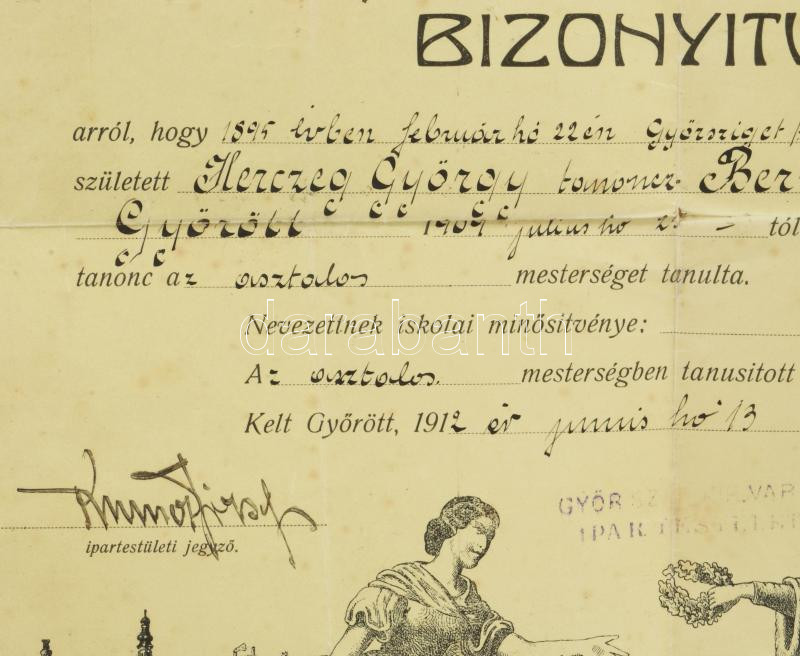 BIZONYITV
arról, hogy 1895 évben február hó 22én Győrsziget
született Herczeg György tanoncz Ber
Győrött 1909 julius hó 25 – tól
tanonc az asztalos mesterséget tanulta.
darabanth
Nevezettnek iskolai minősitvénye:
Az asztalos mesterségben tanusitott
Kelt Győrött, 1912 év junius hó 13
GYŐR SZ. VAR
IPARTESTÜLET
ipartestületi jegyző.